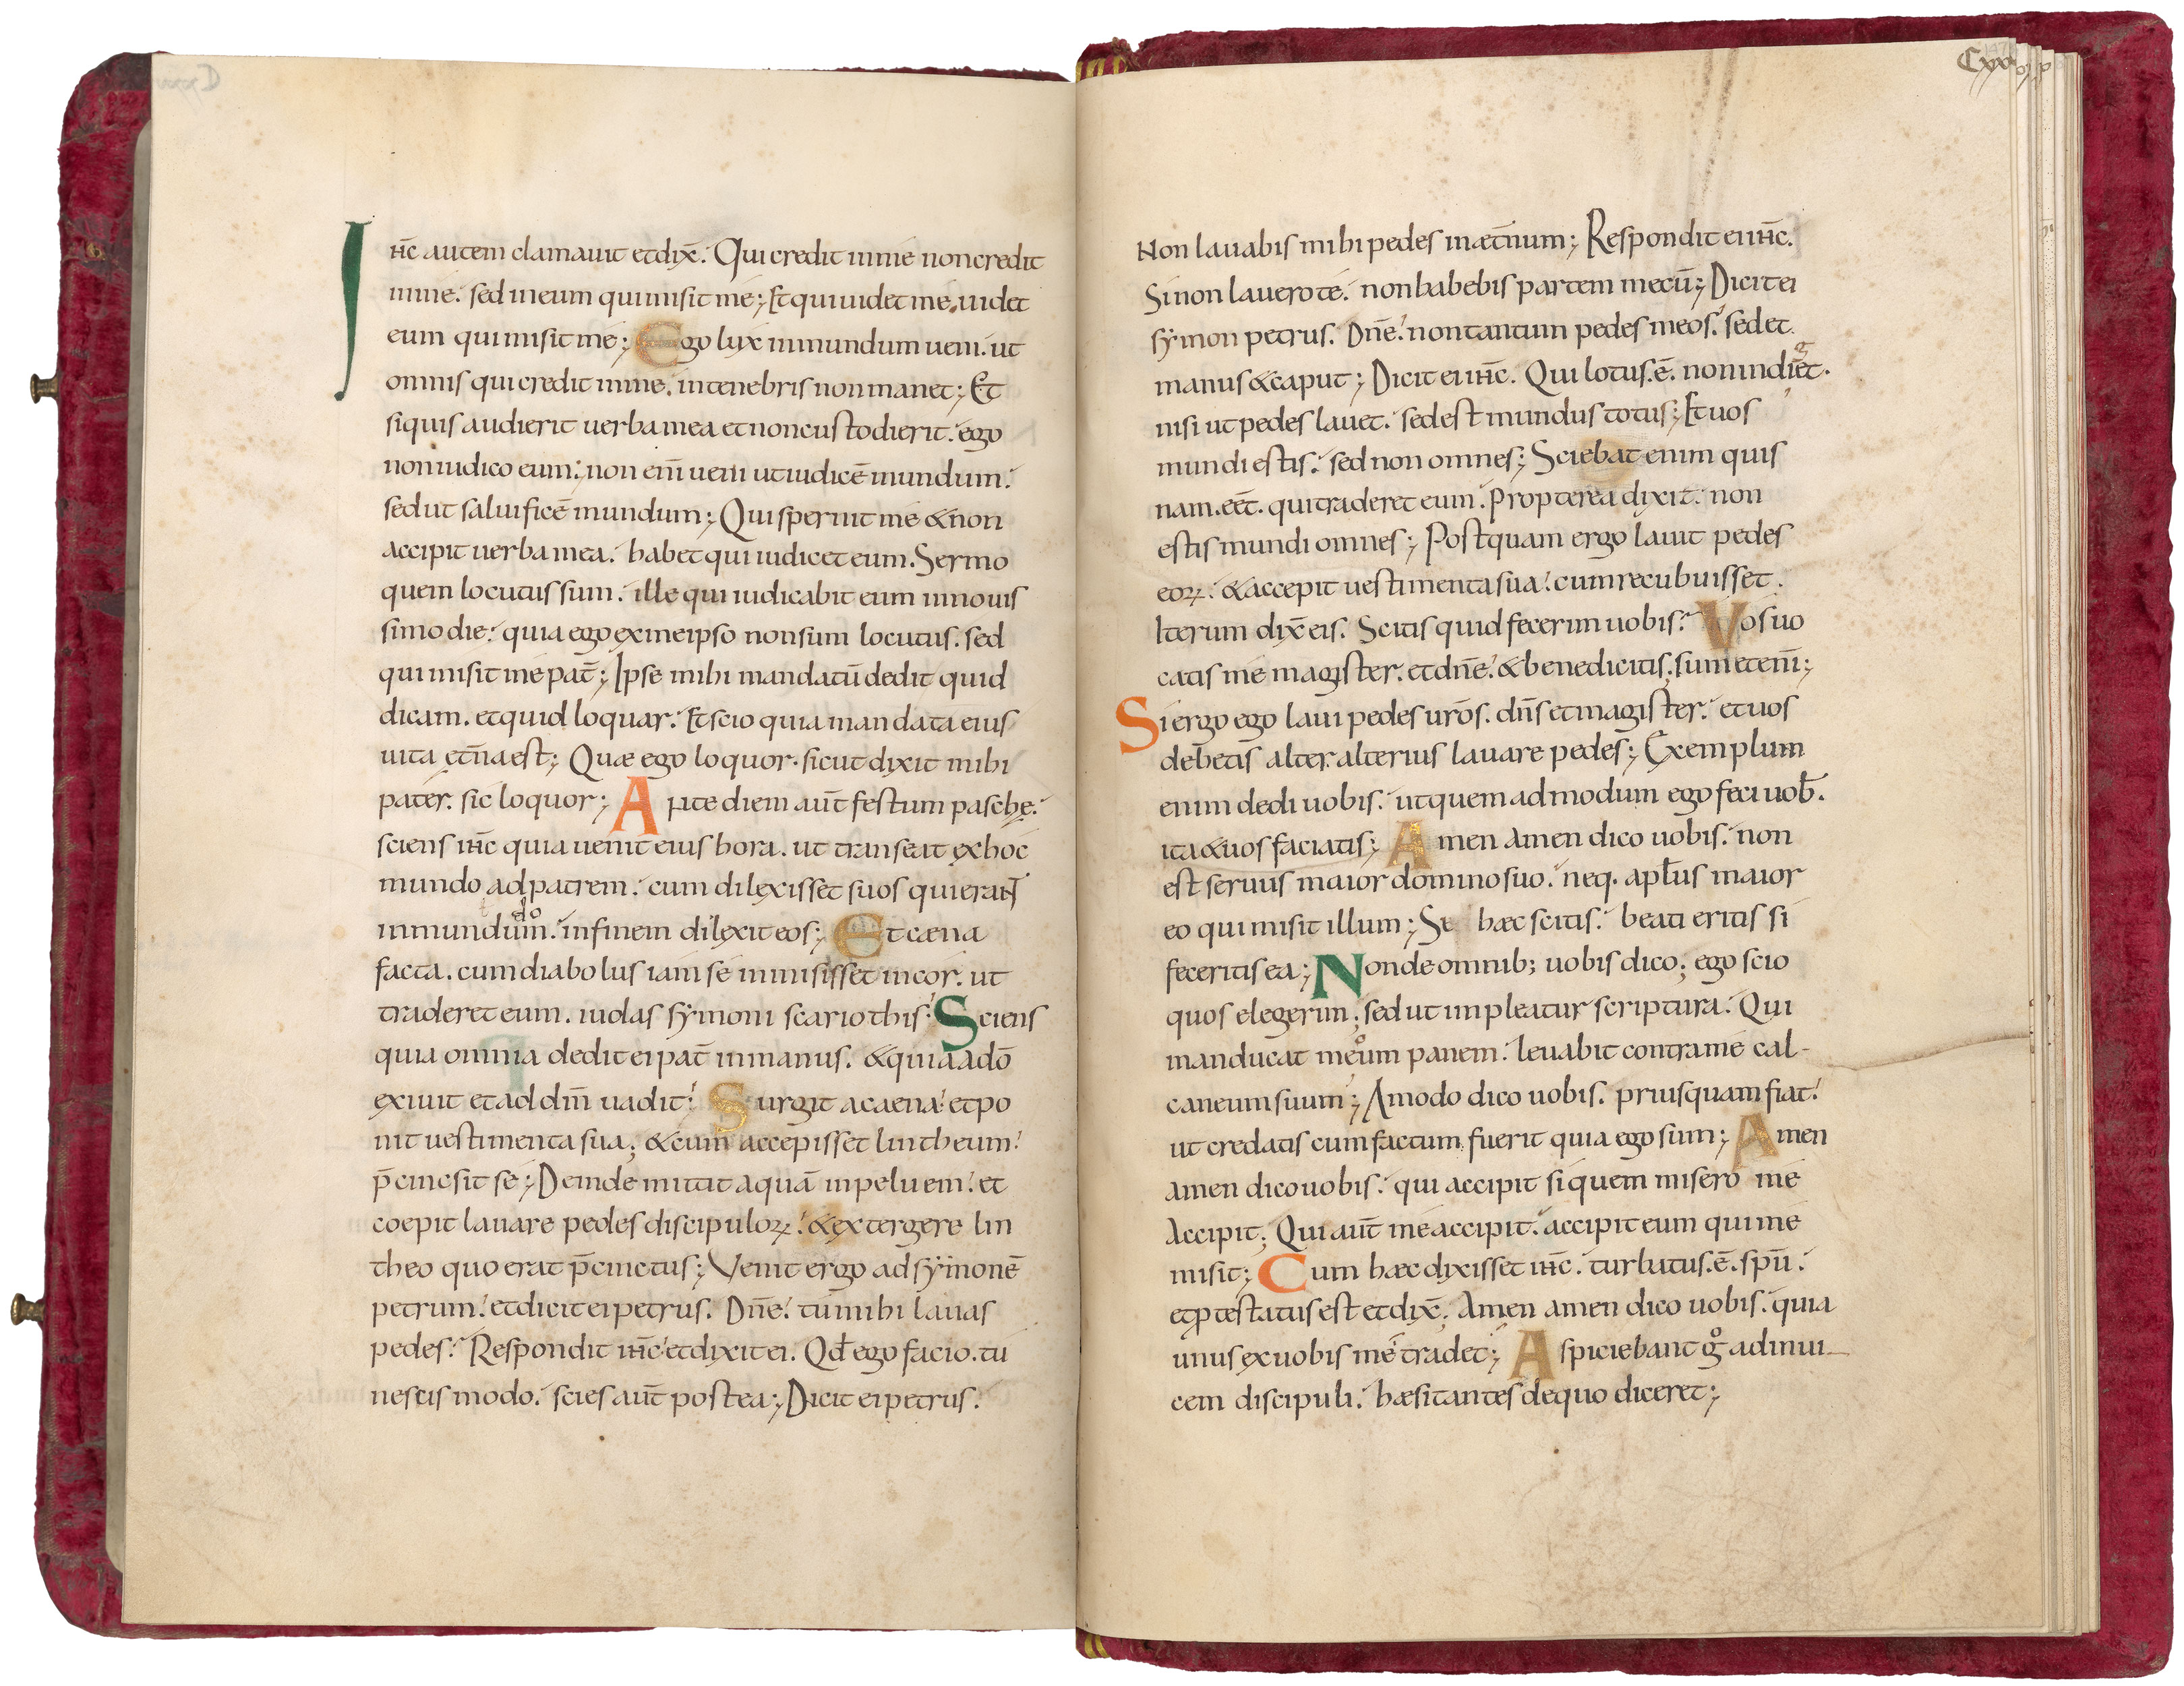 Iħc autem clamauit et dix̄. Qui credit in me non credit
in me. sed in eum qui misit me; Et qui uidet me. uidet
eum qui misit me; Ego lux in mundum ueni. ut
omnis qui credit in me. in tenebris non manet; Et
siquis audierit uerba mea et non custodierit. ego
non iudico eum; non eni͂ ueni ut iudicē mundum.
sed ut saluificē mundum; Qui spernit me & non
accipit uerba mea. habet qui iudicet eum. Sermo
quem locutus sum. ille qui iudicabit eum in nouis
simo die. quia ego ex me ipso non sum locutus. sed
qui misit me pat̄; Ipse mihi mandatū dedit quid
dicam. et quid loquar. Et scio quia mandata eius
uita et̄na est; Quæ ego loquor. sicut dixit mihi
pater. sic loquor; Ante diem aut̄ festum paschę.
sciens iħc quia uenit eius hora. ut transeat ex hoc
mundo ad patrem. cum dilexisset suos qui erant
do
in mundum. in finem dilexit eos; Et cæna
facta. cum diabolus iam se inmisisset in cor. ut
traderet eum. iudas symoni scariothis. Sciens
quia omnia dedit ei pat̄ in manus. & quia a dō
exiuit et ad dm̄ uadit. Surgit a caena. et po
nit uestimenta sua; & cum accepisset lintheum.
p̄cincsit se; Deinde mittit aquā in peluem. et
coepit lauare pedes discipuloꝝ. & extergere lin
theo quo erat p̄cinctus; Venit ergo ad symonē
petrum. et dicit ei petrus. Dn̄e. tu mihi lauas
pedes. Respondit iħc et dixit ei. Qđ ego facio. tu
nescis modo. scies aut̄ postea; Dicit ei petrus.
Cxx
Non lauabis mihi pedes in æt̄num; Respondit ei iħc.
Si non lauero te. non habebis partem mecū; Dicit ei
symon petrus. Dn̄e. non tantum pedes meos. sed et
manus & caput; Dicit ei iħc. Qui lotus. ē. non indiget.
nisi ut pedes lauet. sed est mundus totus; Et uos
mundi estis. sed non omnes; Sciebat enim quis
nam. eēt. qui traderet eum. Propterea dixit. non
estis mundi omnes; Postquam ergo lauit pedes
eoꝝ. & accepit uestimenta sua. cum recubuisset.
Iterum dix̄ eis. Scitis quid fecerim uobis. Vos uo
catis me magister. et dn̄e. & bene dicitis. sum eteni͂;
Si ergo ego laui pedes ur̄os. dn̄s et magister. et uos
debetis alter alterius lauare pedes; Exemplum
enim dedi uobis. ut quem ad modum ego feci uob̄.
ita & uos faciatis; Amen amen dico uobis. non
est seruus maior domino suo. neq. apl̄us maior
eo qui misit illum; Si hæc scitis. beati eritis si
feceritis ea; Non de omnib; uobis dico; ego scio
quos elegerim; sed ut impleatur scriptura. Qui
manducat meum panem. leuabit contra me cal-
caneum suum; Amodo dico uobis. priusquam fiat.
ut credatis cum factum fuerit quia ego sum; Amen
amen dico uobis. qui accipit si quem misero me
Accipit; Qui aut̄ me accipit. accipit eum qui me
misit; Cum hæc dixisset iħc. turbatus. ē. spū.
et ꝓtestatus est et dix̄; Amen amen dico uobis. quia
unus ex uobis me tradet; Aspiciebant g̊ ad inui
cem discipuli. hæsitantes de quo diceret;